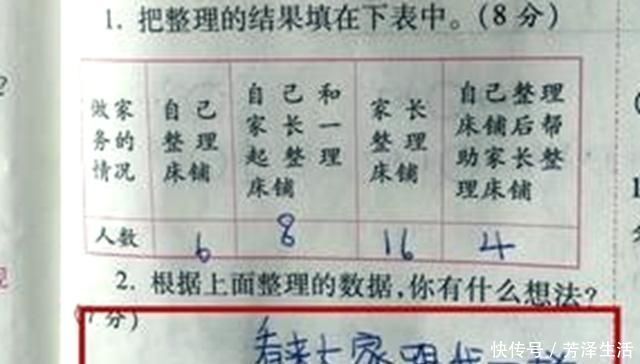 1. 把整理的结果填在下表中。(8分)
做家务的情况
自己整理床铺
自己和家长一起整理床铺
家长整理床铺
自己整理床铺后帮助家长整理床铺
人数 6 8 16 4
2. 根据上面整理的数据,你有什么想法?
(7分)
看来大家
快传号/芳泽生活